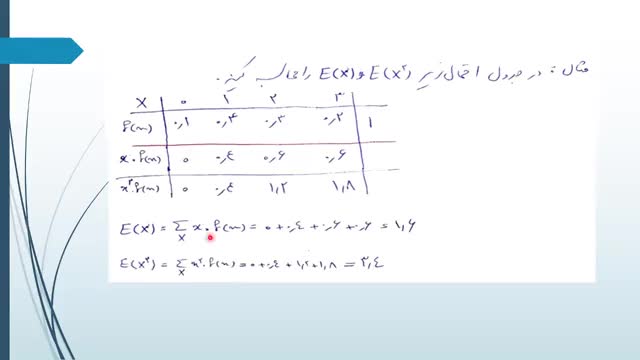 مثال : در جدول احتمال زیر E(X²) و E(X) را محاسبه کنید.
X ۰ ۱ ۲ ۳
f(x) ۰,۱ ۰,۴ ۰,۳ ۰,۲ ۱
x.f(x) ۰ ۰,۴ ۰,۶ ۰,۶
x².f(x) ۰ ۰,۴ ۱,۲ ۱,۸
E(X) = Σ x.f(x) = ۰ + ۰,۴ + ۰,۶ + ۰,۶ = ۱,۶
X
E(X²) = Σ x².f(x) = ۰ + ۰,۴ + ۱,۲ + ۱,۸ = ۳,۴
X